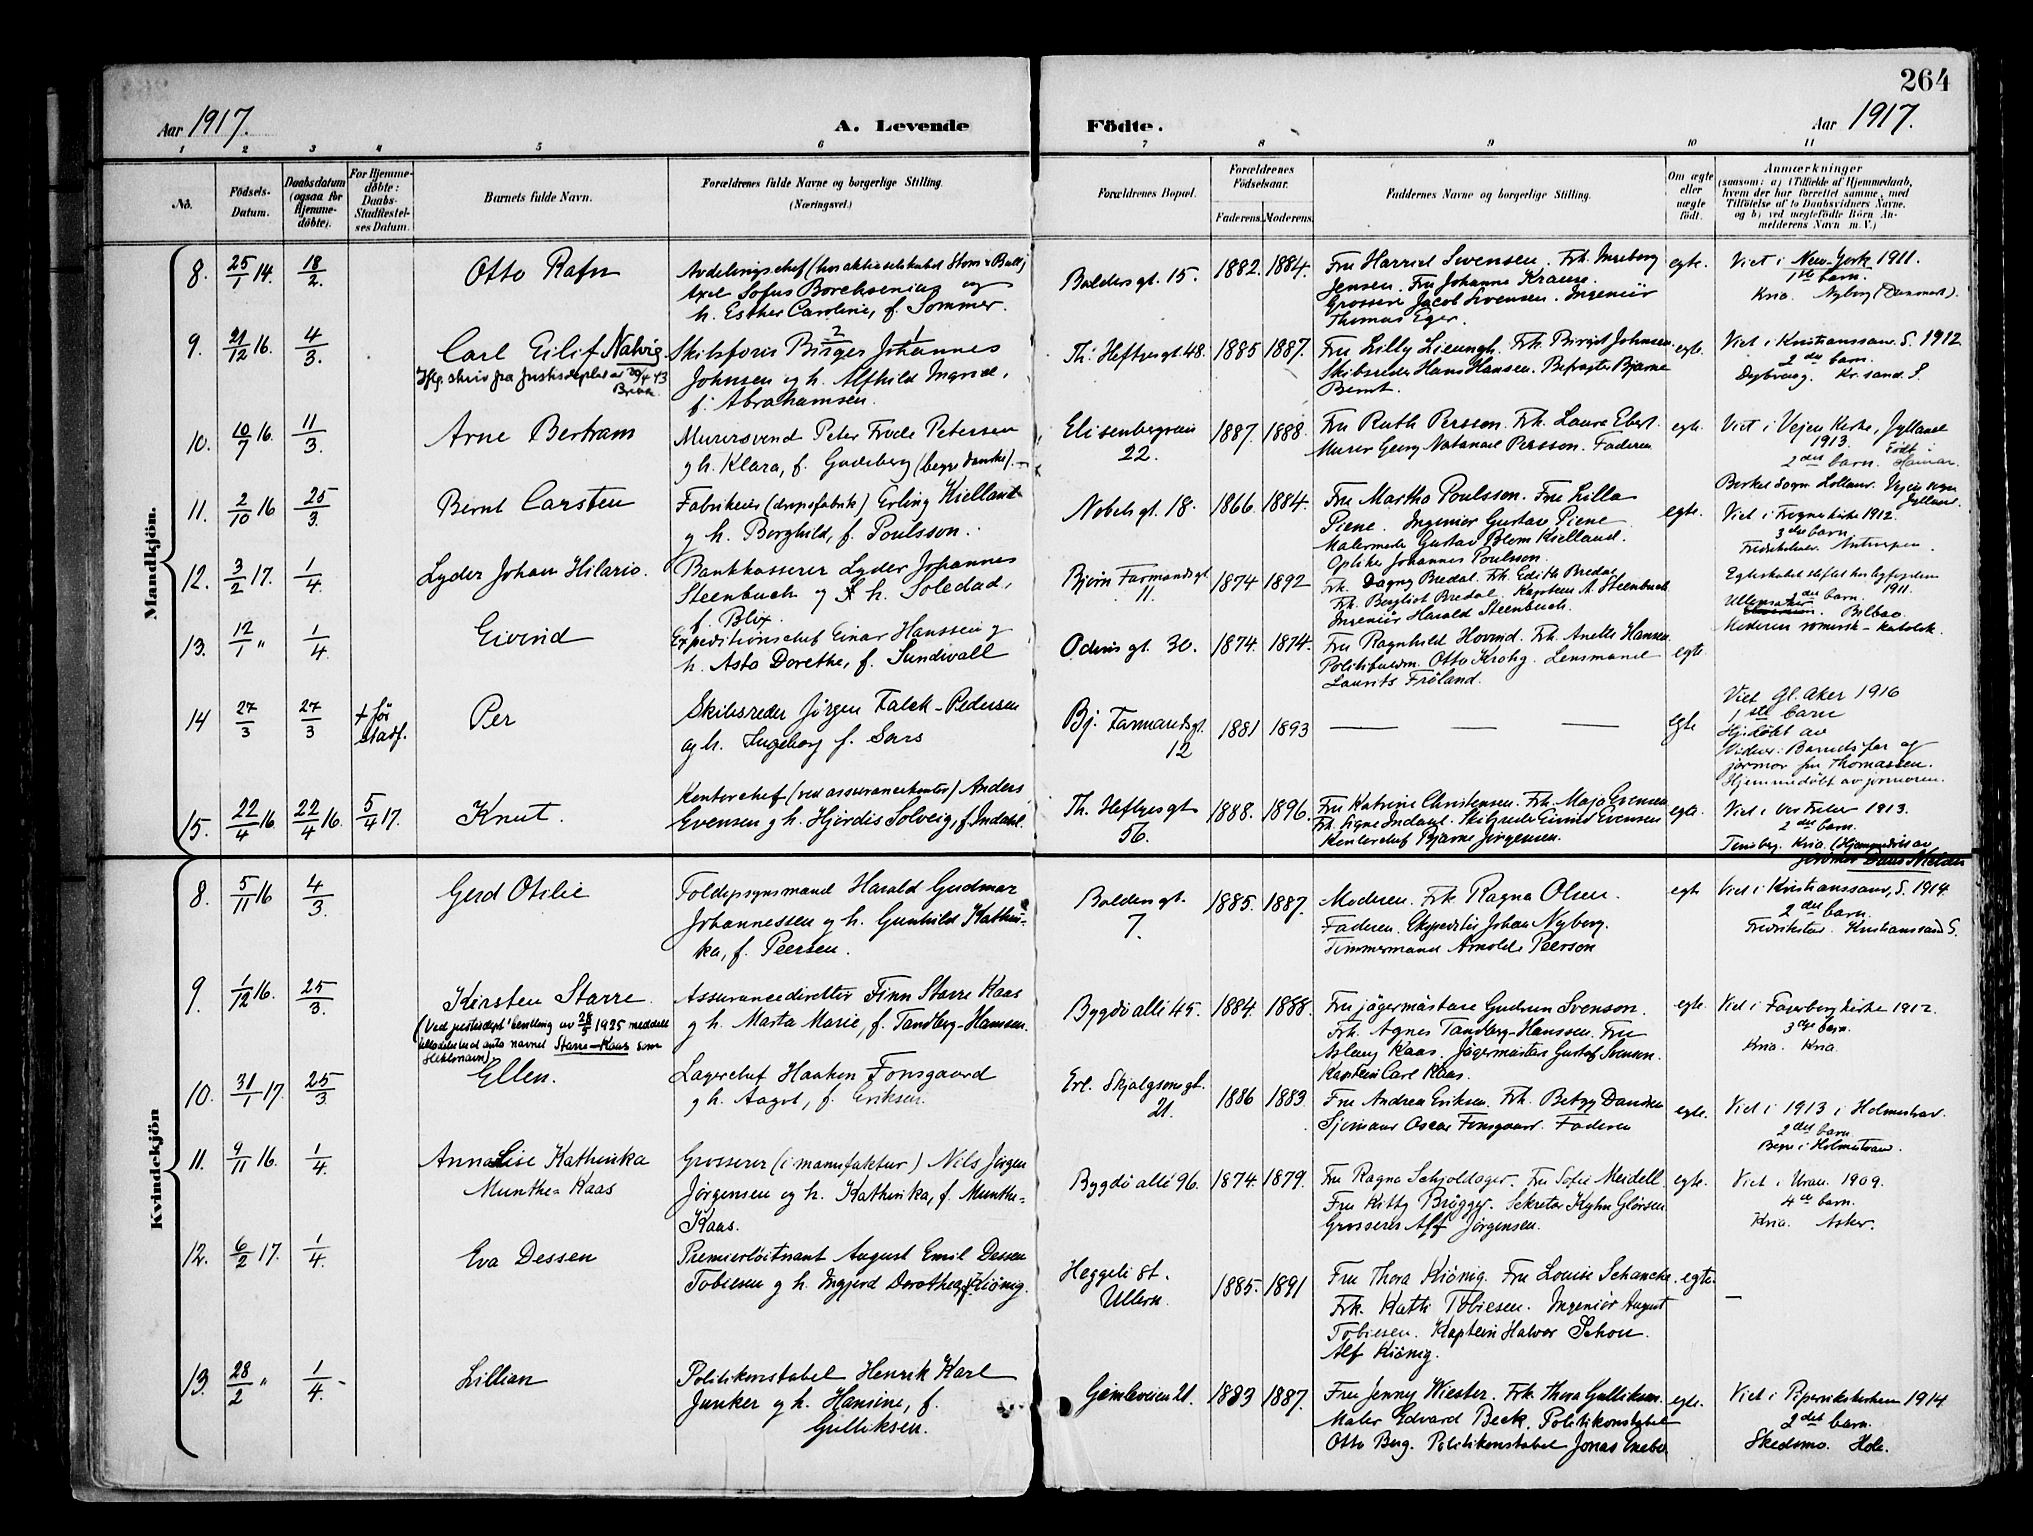 264
Aar 1917.
A. Levende
Födte.
Aar 1917.
1 2 3 4 5 6 7 8 9 10 11
No.
Födsels-Datum.
Daabsdatum (ogsaa for Hjemme-döbte).
For Hjemme-døbte: Daabs-Stadfæstel-ses Datum.
Barnets fulde Navn.
Forældrenes fulde Navne og borgerlige Stilling.
(Næringsvei.)
Forældrenes Bopæl.
Forældrenes Födselsaar.
Faderens. Moderens.
Faddernes Navne og borgerlige Stilling.
Om ægte eller uægte født.
Anmærkninger
(saasom: a) i Tilfælde af Hjemmedaab, hvem der har forrettet samme, med Tilföielse af to Daabsvidners Navne, og b) ved uægtefödte Börn An-melderens Navn m. V.)
Mandkjön.
8. 25/1 14. 18/2. Otto Rafn
Avdelingschef (hos aktieselskabet Storm & Bull)
Axel Sofus Borchsenius og
h. Esther Caroline, f. Sommer.
Baldersgt. 15. 1882. 1884.
Fru Harriet Svensen. Frk. Ingeborg
Jensen. Fru Johanne Krause.
Grosserer Jacob Svensen. Ingeniör
Thomas Eger.
egte.
Viet i New-York 1911.
1ste barn.
Kria. Nyborg (Danmark).
9. 21/12 16. 4/3. Carl Eilif Nalvig
Iflg. skriv fra Justisdeptet av 29/4 43
Skibsfører Birger Johannes
Johnsen og h. Alfhild Ingrid,
f. Abrahamsen.
Th. Heftyesgt. 48. 1885 1887.
Fru Lilly Lieungh. Frk. Birgit Johnsen
Skibsreder Hans Hansen. Befragter Bjarne
Bernt.
egte.
Viet i Kristianssand S. 1912
2det barn.
Dybvaag. Kr.sand. S.
10. 10/7 16. 11/3. Arne Bertram
Murersvend Peter Frode Petersen
og h. Klara, f. Godeberg (begge danske).
Elisenbergveien
22.
1887. 1888.
Fru Ruth Persson. Frk. Laura Ebert.
Murer Georg Natanael Persson. Faderen
egte.
Viet i Vejen Kirke, Jylland
1913.
2det barn. Født i Hamar.
11. 2/10 16 25/3. Bernt Carsten
Fabrikeier (dropsfabrik) Erling Kielland
og h. Borghild, f. Poulsson.
Nobelsgt. 18. 1866. 1884.
Fru Martha Poulsson. Fru Lilla
Piene. Ingeniør Gustav Piene
Malermester Gustav Blom Kielland.
Optiker Johannes Poulsson.
egte.
Viet i Frogner kirke 1912.
3die barn.
Fredrikshavn. Antwerpen.
12. 3/2 17. 1/4. Lyder Johan Hilario.
Bankkasserer Lyder Johannes
Steenbuch og h. Soledad,
f. Blix.
Bjørn Farmandsgt.
11.
1874 1892
Frk. Dagny Bredal. Frk. Edith Bredal
Frk. Bergliot Bredal. Kaptein A. Steenbuch
Ingeniør Harald Steenbuch.
1911.
Ullensaker. Bilbao
Moderen romersk-katolsk.
13. 12/1 " 1/4 Eivind
Expeditionschef Einar Hanssen og
h. Asta Dorethe, f. Sundwall
Odinsgt. 30. 1874. 1874.
Fru Ragnhild Hovind. Frk. Anette Hansen
Politifuldm. Otto Krohg. Lensmand
Laurits Fröland.
egte
14 27/3 27/3 + før stadf. Per
Skibsreder Jörgen Falck-Pedersen
og h. Ingeborg f. Sars
Bj. Farmandsgt.
12
1881 1893
— — —
egte
Viet Gl. Aker 1916
1ste barn
Hj.døbt av
Vidner: Barnets far og
jormor fru Thomassen.
Hjemmedøbt av jormoren.
15. 22/4 16. 22/4 16. 5/4 17. Knut.
Kontorchef (ved assurancekontor) Anders
Evensen og h. Hjördis Solveig, f. Indahl.
Th. Heftyesgt
56.
1888. 1896.
Fru Katrine Christensen. Frk. Maja Evensen
Frk. Signe Indahl. Skibsreder Eivind Evensen
Kontorchef Bjarne Jörgensen.
egte.
Viet i Vor Frelser 1913.
2det barn.
Tønsberg. Kria. (Hjemmedöbt av
Kvindekjön
8. 5/11 16 4/3. Gerd Otilie
Toldopsynsmand Harald Gudmar
Johannessen og h. Gunhild Kathin-
ka, f. Peersen.
Baldersgt.
7.
1885. 1887.
Moderen. Frk. Ragna Olsen.
Faderen. Ekspeditör Johan Nyborg.
Tømmermand Arnold Peerson
egte
Viet i Kristianssand, S. 1914.
2det barn.
Fredrikstad. Kristianssand S.
9. 1/12 16. 25/3. Kirsten Starre.
(Ved justisdept' bevilling av 28/5 1925 meddelt
tilladelse til at anta navnet Starre-Kaas som
slektsnavn)
Assurancedirektør Finn Starre Kaas
og h. Marta Marie, f. Tandberg-Hanssen.
Bygdö allé 45. 1884. 1888.
Fru jägermästare Gudrun Svenson.
Frk. Agnes Tandberg-Hanssen. Fru
Aslaug Kaas. Jägermästare Gustaf Svenson.
Kaptein Carl Kaas.
egte.
Viet i Fagerborg kirke 1912.
3die barn.
Kria. Kria.
10. 31/1 17. 25/3. Ellen.
Lagerchef Haaken Fonsgaard
og h. Aagot, f. Eriksen.
Erl. Skjalgsonsgt.
21.
1886 1883.
Fru Andrea Eriksen. Frk. Betzy Danske
Sjömand Oscar Fonsgaard. Faderen
egte.
Viet i 1913 i Holmestrand.
2det barn.
Begge i Holmestrand.
11. 9/11 16. 1/4. Anna Lise Kathinka
Munthe-Kaas
Grosserer (i manufaktur) Nils Jörgen
Jörgensen og h. Kathinka, f. Munthe-
Kaas.
Bygdö allé 96. 1874. 1879.
Fru Ragna Schjoldager. Fru Sofie Meidell
Fru Kitty Brögger. Sekretær Kyhn Glörsen
Grosserer Alf Jörgensen.
egte.
Viet i Uran. 1909.
4de barn.
Kria. Asker.
12. 6/2 17. 1/4. Eva Dessen
Premierløitnant August Emil Dessen
Tobiesen og h. Ingjerd Dorothea, f. Kiönig.
Heggeli st.
Ullern.
1885. 1891
Fru Thora Kiönig. Fru Louise Schancke.
Frk. Kathi Tobiesen. Ingeniør August
Tobiesen. Kaptein Halvor Schou.
Alf Kiönig.
egte.
—
13. 28/2 " 1/4. Lillian
Politikonstabel Henrik Karl
Junker og h. Hansine, f.
Gulliksen.
Gimleveien 21. 1883 1887.
Fru Jenny Wiester. Frk. Thora Gulliksen.
Maler Edvard Beck. Politikonstabel
Otto Berg. Politikonstabel Jonas
egte.
Viet i Piperviks kirken 1914
2det barn.
Skedsmo. Hole.